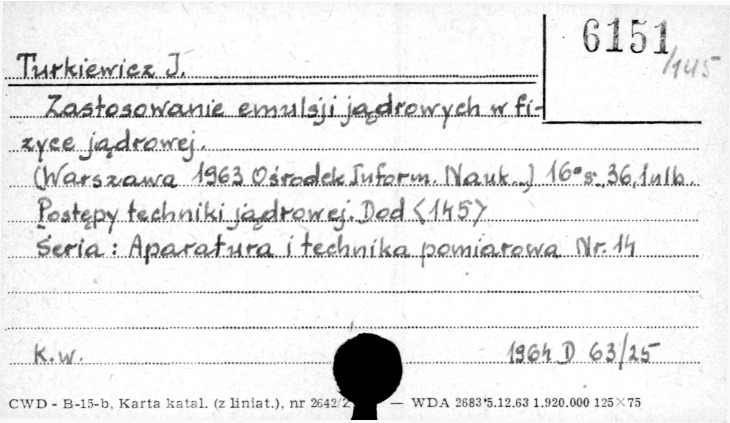 6151
/145
Turkiewicz J.
Zastosowanie emulsji jądrowych w fi-
zyce jądrowej.
(Warszawa 1963 Ośrodek Inform. Nauk...) 16° s. 36, 1 nlb.
Postępy techniki jądrowej. Dod <145>
Seria: Aparatura i technika pomiarowa Nr. 14
K.w. 1964 D 63/25
CWD - B-15-b, Karta katal. (z liniat.), nr 2642/2 — WDA 2683 5.12.63 1.920.000 125×75